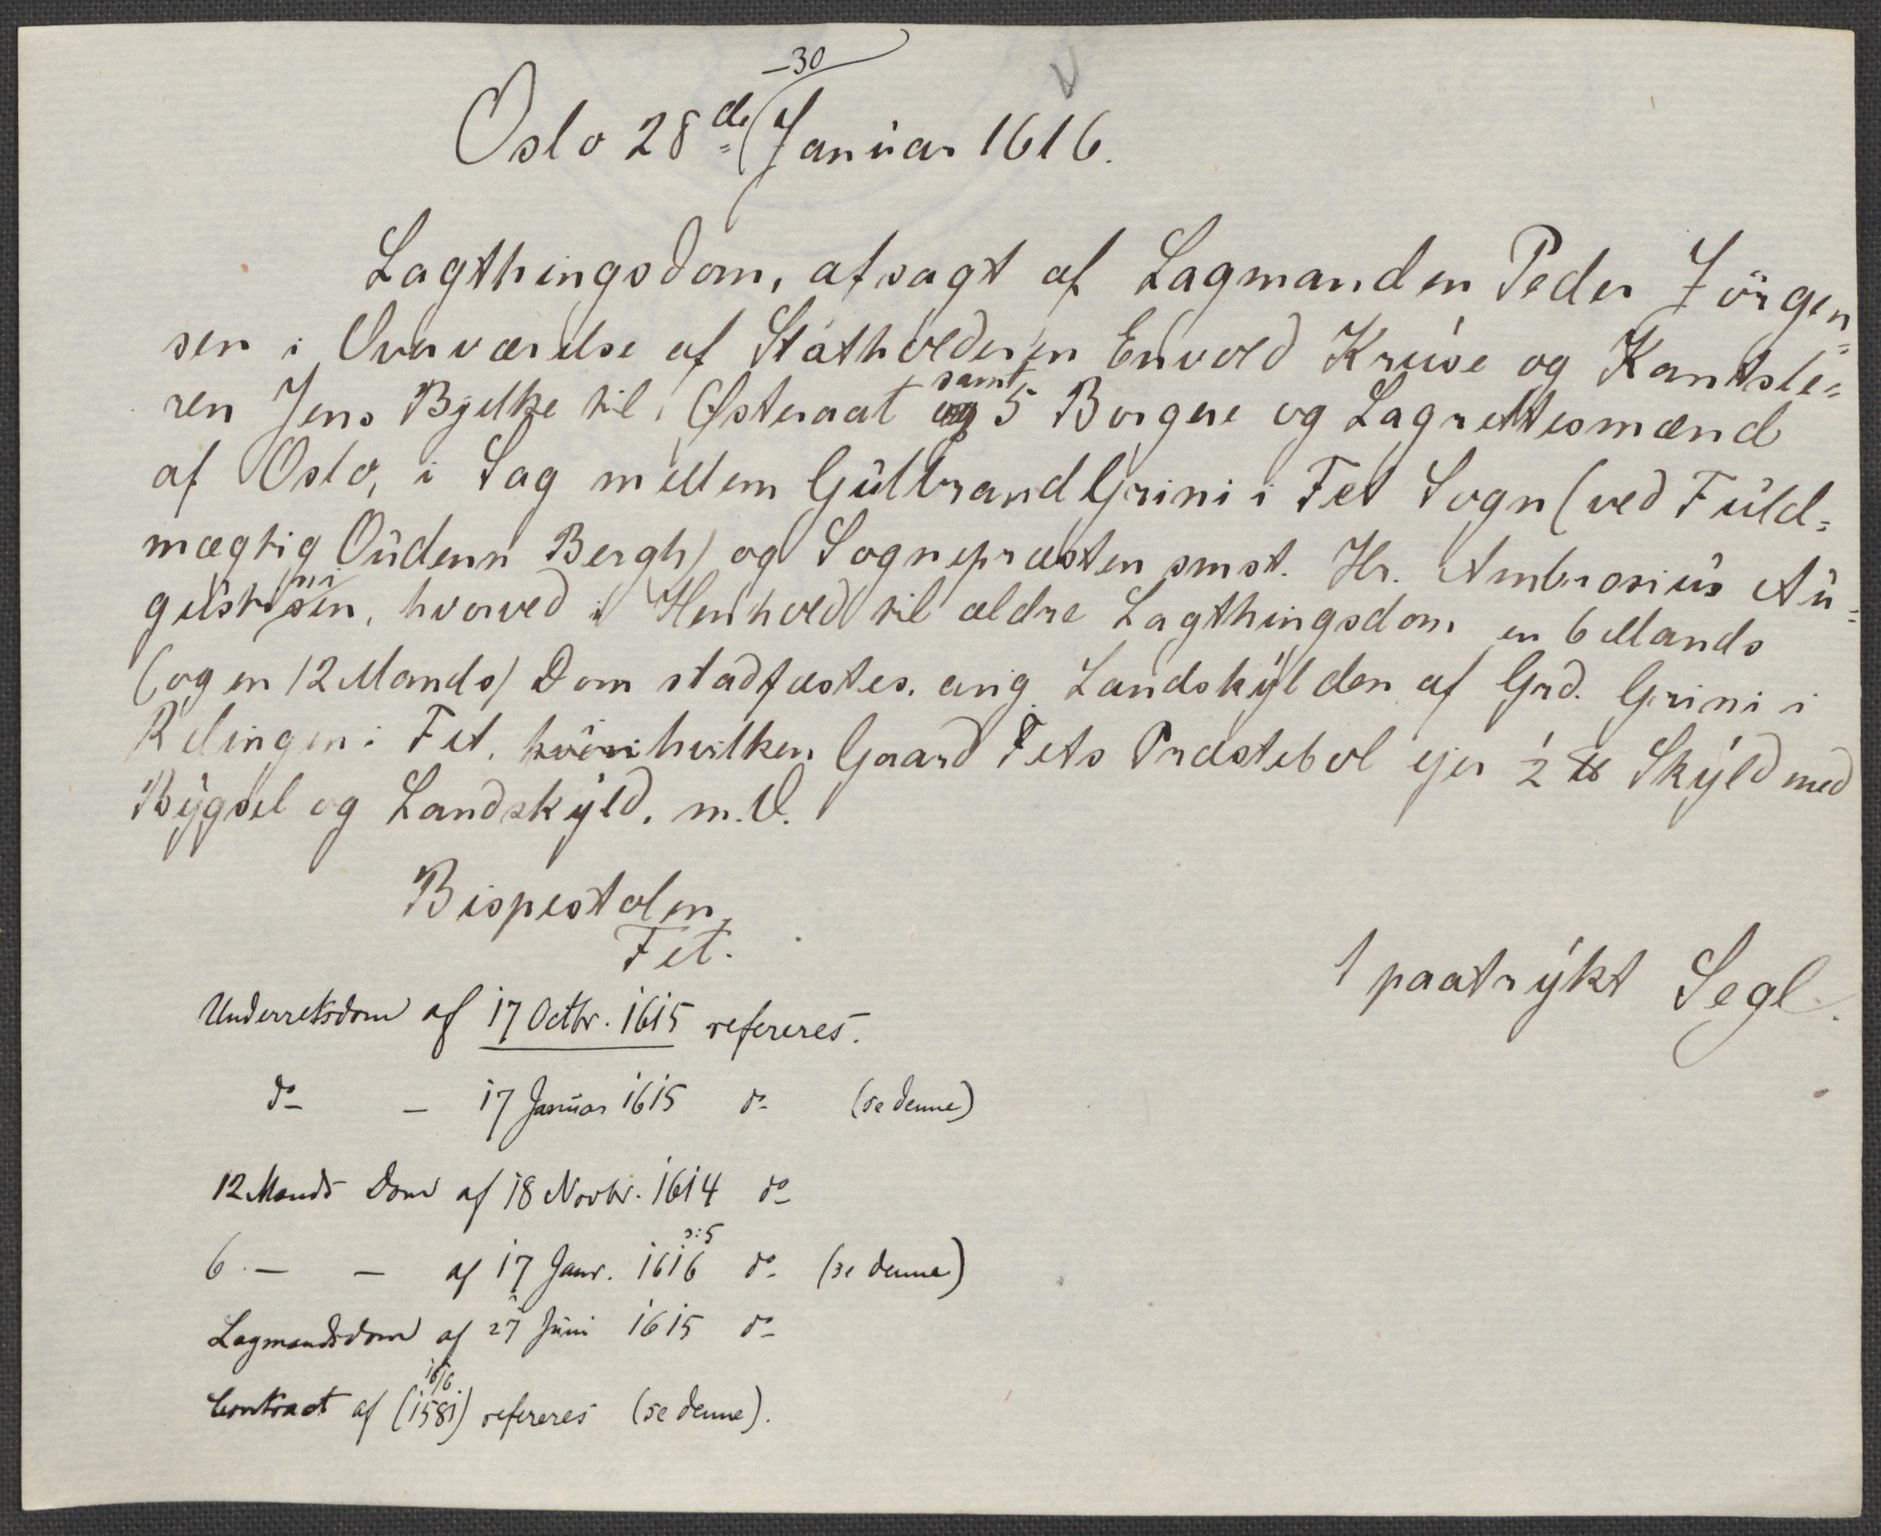 –30
Oslo 28de Januar 1616.
Lagthingsdom, afsagt af Lagmanden Peder Jörgen=
sen i Overværelse af Statholderen Envold Kruse og Kantsle=
ren Jens Bjelke til Østeraat samt 5 Borgere og Lagrettesmænd
af Oslo, i Sag mellem Gulbrand Grini i Fet Sogn (ved Fuld=
mægtig Oudenn Bergh) og Sognepræsten smst. Hr. Ambrosius Au=
gustini, hvorved i Henhold til ældre Lagthingsdom en 6 Mands
(og en 12 Mands) Dom stadfæstes, ang. Landskylden af Grd. Grini i
Relingen i Fet, i hvilken Gaard Fets Præstebol ejer ½ ℔ Skyld med
Bygsel og Landskyld. m.V.
Bispestolen,
Fet.
1 paatrykt Segl.
Underretsdom af 17 Octbr. 1615 refereres.
do – 17 Januar 1615 do (se denne)
12 Mands Dom af 18 Novbr. 1614 do
ɔ: 5
6 – – af 17 Janr. 1616 do (se denne)
Lagmandsdom af 27 Juni 1615 do
16/6
Contract af (1581) refereres (se denne).